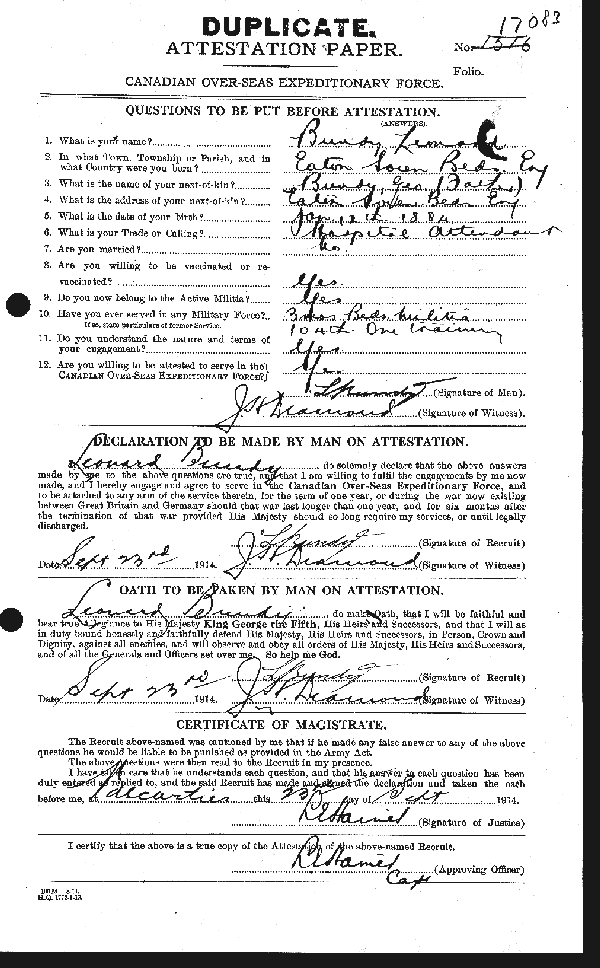 17083
DUPLICATE.
ATTESTATION PAPER.
No. 1516
Folio.
CANADIAN OVER-SEAS EXPEDITIONARY FORCE.
QUESTIONS TO BE PUT BEFORE ATTESTATION.
(ANSWERS).
1. What is your name? Bundy Leonard
2. In what Town, Township or Parish, and in
what Country were you born? Eaton Socon Beds Eng
3. What is the name of your next-of-kin? Bundy, Geo (Father)
4. What is the address of your next-of-kin? Eaton Socon Beds Eng
5. What is the date of your birth? Jan 1884
6. What is your Trade or Calling? Hospital Attendant
7. Are you married? No.
8. Are you willing to be vaccinated or re-
vaccinated? Yes
9. Do you now belong to the Active Militia? Yes
10. Have you ever served in any Military Force? Beds Militia
If so, state particulars of former Service. 104th One training
11. Do you understand the nature and terms of
your engagement? Yes
12. Are you willing to be attested to serve in the
CANADIAN OVER-SEAS EXPEDITIONARY FORCE? Yes
L Bundy (Signature of Man).
J H Diamond (Signature of Witness).
DECLARATION TO BE MADE BY MAN ON ATTESTATION.
I, Leonard Bundy do solemnly declare that the above answers
made by me to the above questions are true, and that I am willing to fulfil the engagements by me now
made, and I hereby engage and agree to serve in the Canadian Over-Seas Expeditionary Force, and
to be attached to any arm of the service therein, for the term of one year, or during the war now existing
between Great Britain and Germany should that war last longer than one year, and for six months after
the termination of that war provided His Majesty should so long require my services, or until legally
discharged.
L Bundy (Signature of Recruit)
Date Sept 23rd 1914. J H Diamond (Signature of Witness)
OATH TO BE TAKEN BY MAN ON ATTESTATION.
I, Leonard Bundy do make Oath, that I will be faithful and
bear true Allegiance to His Majesty King George the Fifth, His Heirs and Successors, and that I will as
in duty bound honestly and faithfully defend His Majesty, His Heirs and Successors, in Person, Crown and
Dignity, against all enemies, and will observe and obey all orders of His Majesty, His Heirs and Successors,
and of all the Generals and Officers set over me. So help me God.
L Bundy (Signature of Recruit)
Date Sept 23rd 1914. J H Diamond (Signature of Witness)
CERTIFICATE OF MAGISTRATE.
The Recruit above-named was cautioned by me that if he made any false answer to any of the above
questions he would be liable to be punished as provided in the Army Act.
The above questions were then read to the Recruit in my presence.
I have taken care that he understands each question, and that his answer to each question has been
duly entered as replied to, and the said Recruit has made and signed the declaration and taken the oath
before me, at Valcartier this 23rd day of Sept 1914.
(Signature of Justice)
I certify that the above is a true copy of the Attestation of the above-named Recruit.
(Approving Officer)
Capt